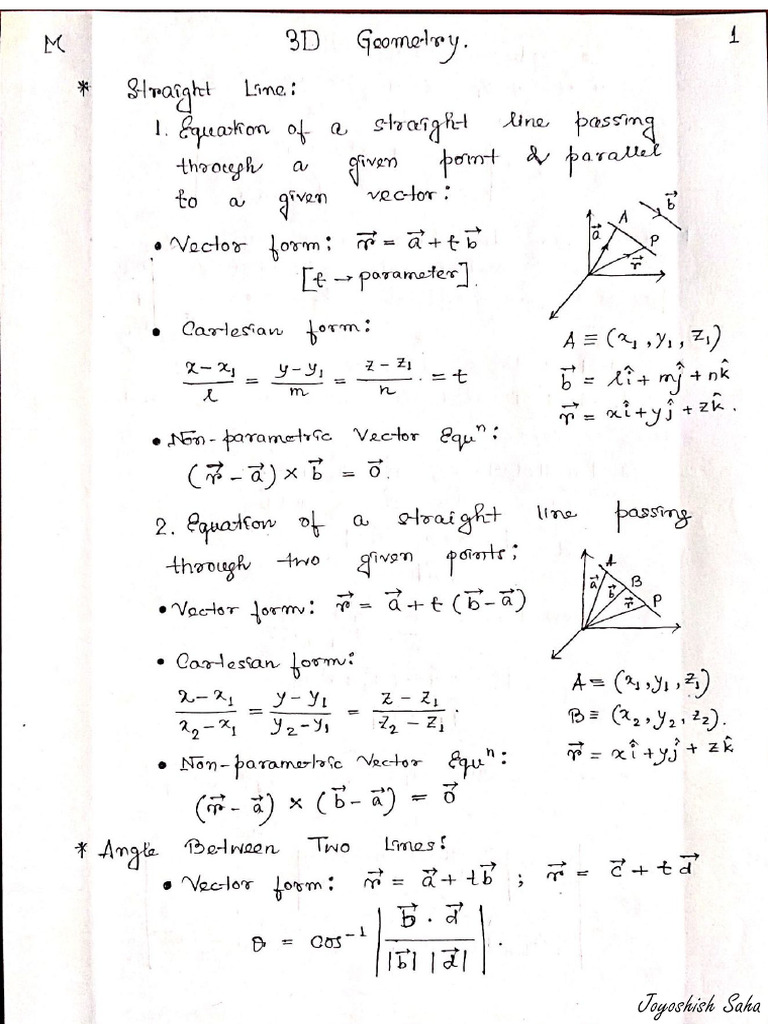 M 3D Geometry. 1
* Straight Line:
1. Equation of a straight line passing
through a given point & parallel
to a given vector:
• Vector form: r⃗ = a⃗ + t b⃗
[t → parameter].
A
b⃗
a⃗
P
r⃗
• Cartesian form:
(x - x₁)/l = (y - y₁)/m = (z - z₁)/n = t
A ≡ (x₁, y₁, z₁)
b⃗ = lî + mĵ + nk̂
r⃗ = xî + yĵ + zk̂.
• Non-parametric Vector Equⁿ:
(r⃗ - a⃗) × b⃗ = 0⃗.
2. Equation of a straight line passing
through two given points:
• Vector form: r⃗ = a⃗ + t (b⃗ - a⃗)
A
B
a⃗
b⃗
r⃗
P
• Cartesian form:
(x - x₁)/(x₂ - x₁) = (y - y₁)/(y₂ - y₁) = (z - z₁)/(z₂ - z₁).
A ≡ (x₁, y₁, z₁)
B ≡ (x₂, y₂, z₂).
r⃗ = xî + yĵ + zk̂
• Non-parametric Vector Equⁿ:
(r⃗ - a⃗) × (b⃗ - a⃗) = 0⃗
* Angle Between Two Lines:
• Vector form: r⃗ = a⃗ + t b⃗ ; r⃗ = c⃗ + t d⃗
θ = cos⁻¹ |(b⃗ . d⃗)/(|b⃗| |d⃗|)|.
Joyoshish Saha